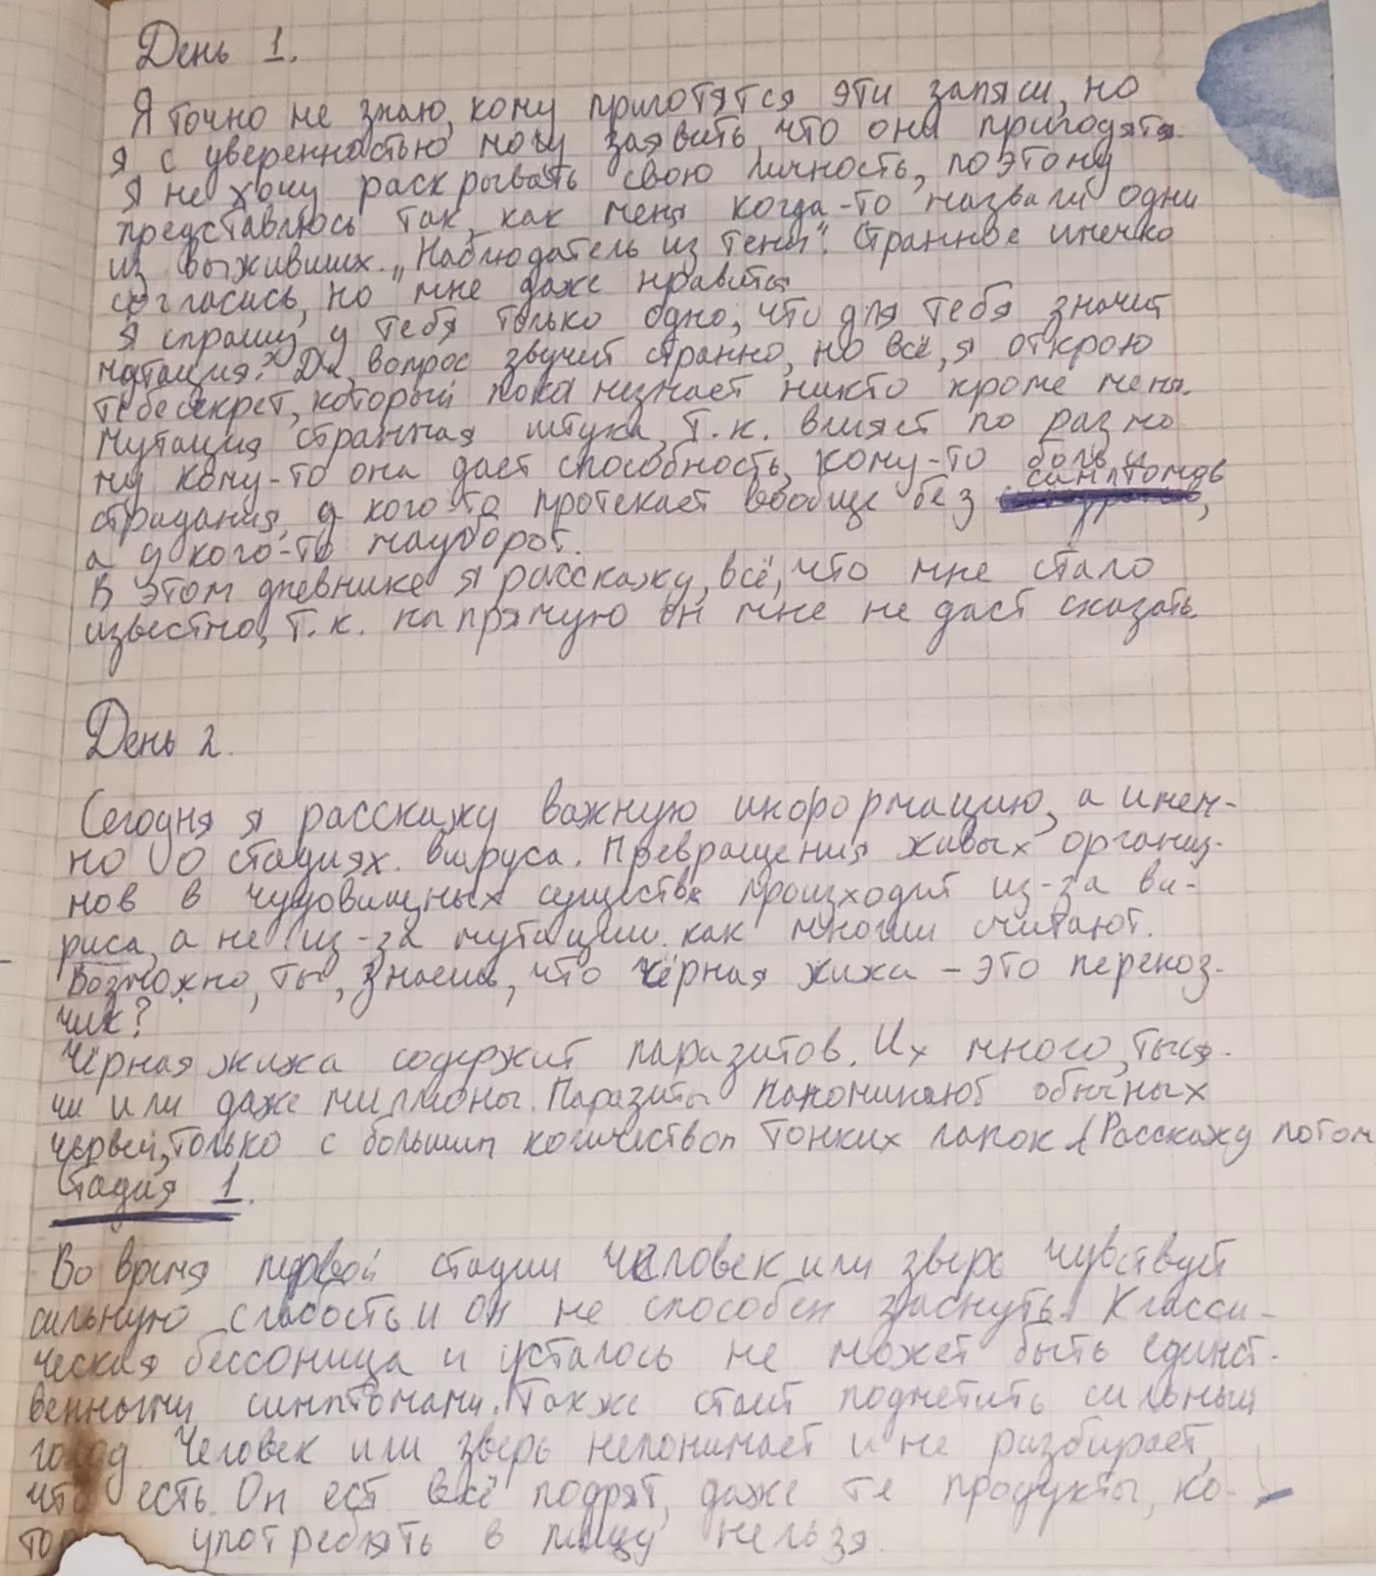 День 1.
Я точно не знаю, кому приготятся эти записи, но
я с уверенностью могу заявить, что они пригодятся.
Я не хочу раскрывать свою личность, поэтому
представлюсь так, как меня когда-то назвали одни
из выживших „Наблюдатель из тени". Странное имечко
согласись, но мне даже нравиться
Я спрошу у тебя только одно, что для тебя значит
мутация? Да, вопрос звучит странно, но всё, я открою
тебе секрет, который пока незнает никто кроме меня.
Мутация странная штука, т.к. влияет по разно
му кому-то она даёт способность, кому-то боль и
страдания, у кого то протекает вообще без симптомов,
а у кого-то науборот.
В этом дневнике я расскажу, всё, что мне стало
известно, т.к. на прямую он мне не даст сказать
День 2.
Сегодня я расскажу важную информацию, а имен-
но о стадиях вируса. Превращения живых организ-
мов в чудовищных существ происходит из-за ви-
риса, а не из-за мутации как многии считают.
Возможно, ты, знаешь, что чёрная жижа – это перенос-
чик?
Чёрная жижа содержит паразитов. Их много, тыся-
чи или даже миллионы. Паразиты напоминают обычных
червей, только с большим количеством тонких лапок (Расскажу потом
Стадия 1.
Во время первой стадии человек или зверь чувствует
сильную слабость и он не способен заснуть. Класси-
ческая бессоница и усталось не может быть единст-
венными симптомами. Также стоит подметить сильный
голод. Человек или зверь непонимает и не разбирает,
что есть. Он ест всё подрят, даже те продукты, ко-
тор употреблять в пищу нельзя.